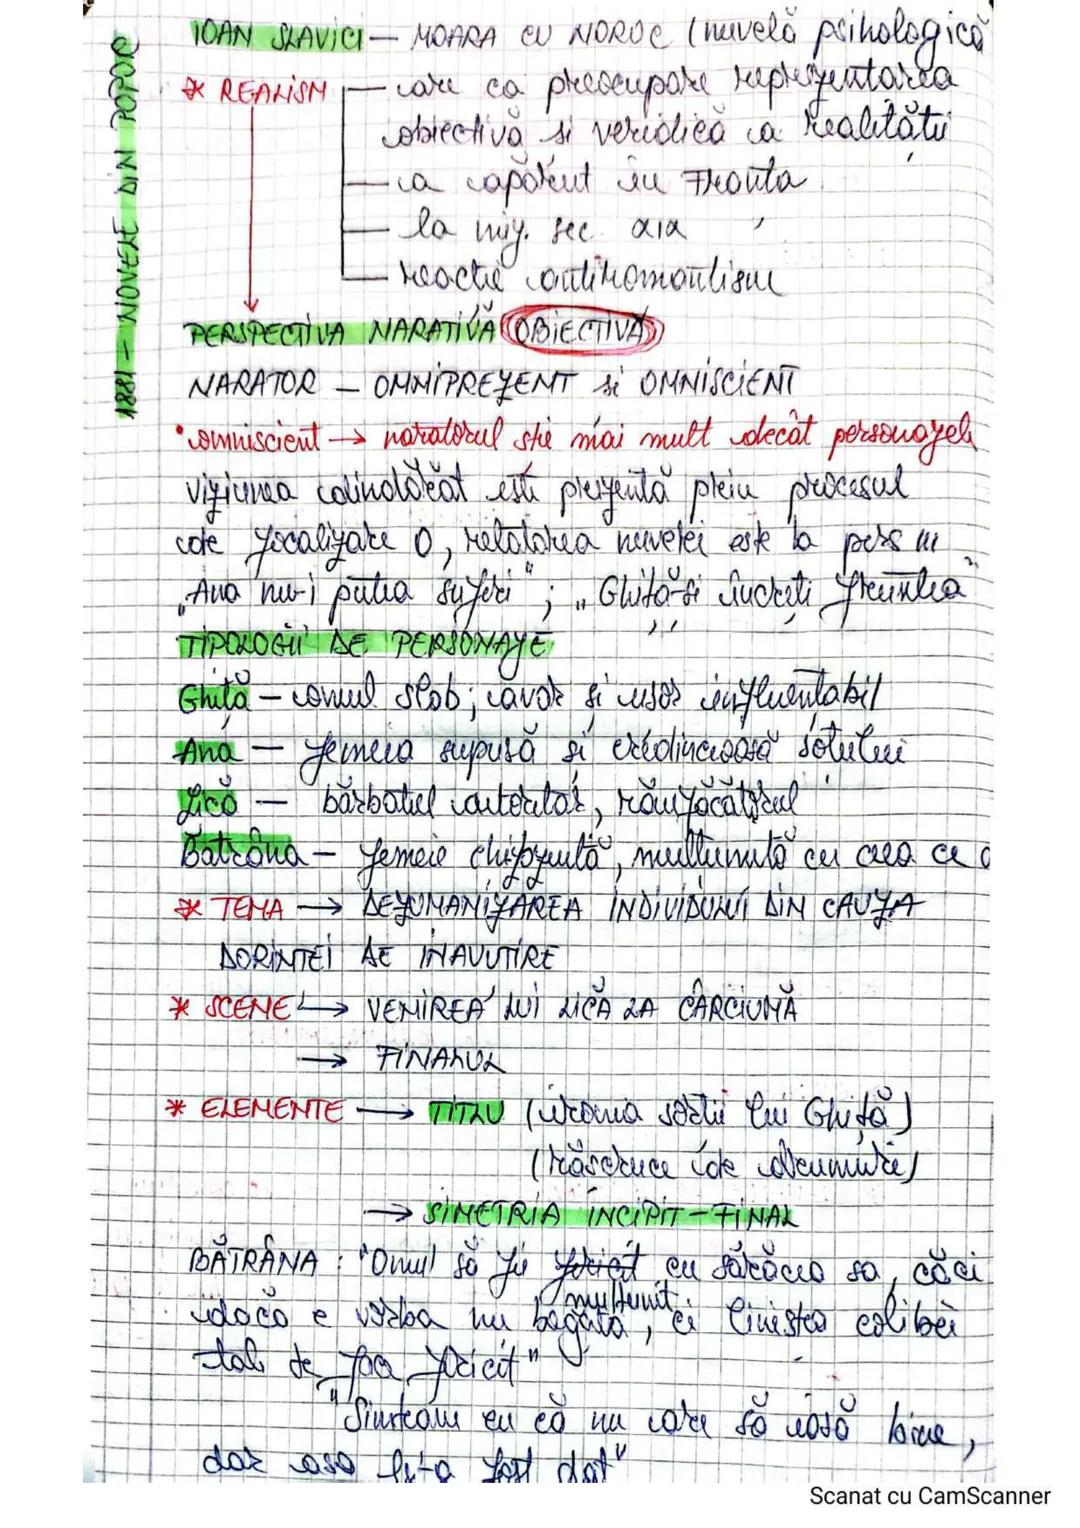 1881 - NUVELE DIN POPOR
IOAN SLAVICI - MOARA CU NOROC (nuvelă psihologică
* REALISM - are ca preocupare reprezentarea
obiectivă si veridică a realității
- a apărut in Franta
- la mij. sec. XIX
- reactie antiromantism
PERSPECTIVA NARATIVĂ OBIECTIVĂ
NARATOR - OMNIPREZENT si OMNISCIENT
• omniscient → naratorul stie mai mult decât personajele
viziunea dindărăt este prezentă prin procesul
de focalizare 0, relatarea nuvelei este la pers III
"Ana nu-i putea suferi" ; "Ghiță-si încreți fruntea"
TIPOLOGII DE PERSONAJE
Ghiță - omul slab; avar si usor influentabil
Ana - femeia supusă si credincioasă sotului
Lică - bărbatul autoritar, răufăcătorul
Bătrâna - femeie chibzuită, multumită cu ceea ce a
* TEMA → DEZUMANIZAREA INDIVIDULUI DIN CAUZA
DORINTEI DE INAVUTIRE
* SCENE → VENIREA LUI LICĂ LA CÂRCIUMĂ
→ FINALUL
* ELEMENTE → TITLU (ironia sortii lui Ghiță)
(răscruce de drumuri)
→ SIMETRIA INCIPIT-FINAL
BĂTRÂNA : "Omul să fie fericit cu sărăcia sa, căci
multumit
dacă e vorba nu bogăta, ci linistea colibei
tale te face fericit"
"Simteam eu că nu are să iasă bine,
dar asa li-a fost dat"
Scanat cu CamScanner